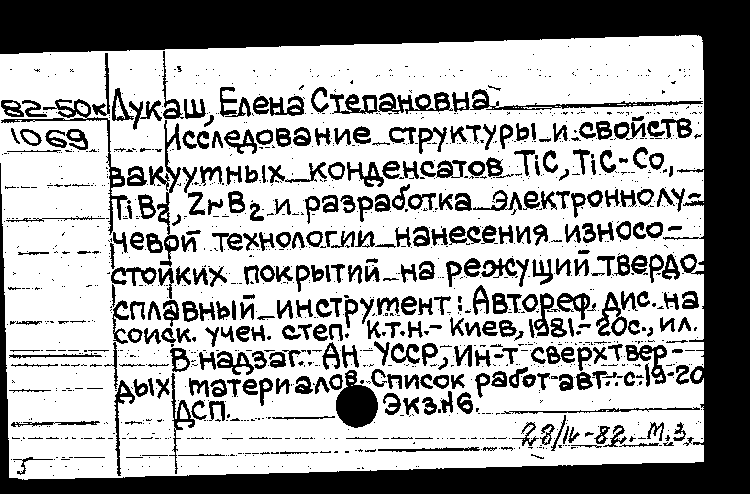 82-50к Лукаш, Елена Степановна.
1069 Исследование структуры и свойств
вакуутных конденсатов TiC, TiC-Co,
TiB2, ZrB2 и разработка электроннолу-
чевой технологии нанесения износо-
стойких покрытий на режущий твердо-
сплавный инструтент: Автореф. дис. на
соиск. учен. степ. к.т.н.- Киев, 1981.- 20с., ил.
В надзаг.: АН УССР, Ин-т сверхтвер-
дых материалов. Список работ авт.: с.19-20
ДСП. Экз.№6.
28/IV-82. М.З.
5